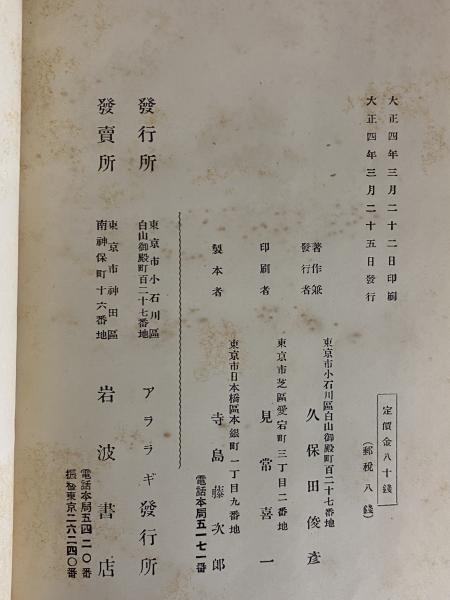 大正四年三月二十二日印刷
大正四年三月二十五日發行
定價金八十錢
(郵税八錢)
著作兼
發行者
東京市小石川區白山御殿町百二十七番地
久保田俊彦
印刷者
東京市芝區愛宕町三丁目二番地
見常喜一
製本者
東京市日本橋區本銀町一丁目九番地
寺島藤次郎
電話本局五一七一番
發行所
東京市小石川區
白山御殿町百二十七番地
アララギ發行所
發賣所
東京市神田區
南神保町十六番地
岩波書店
電話本局五四二〇番
振替東京二六二四〇番